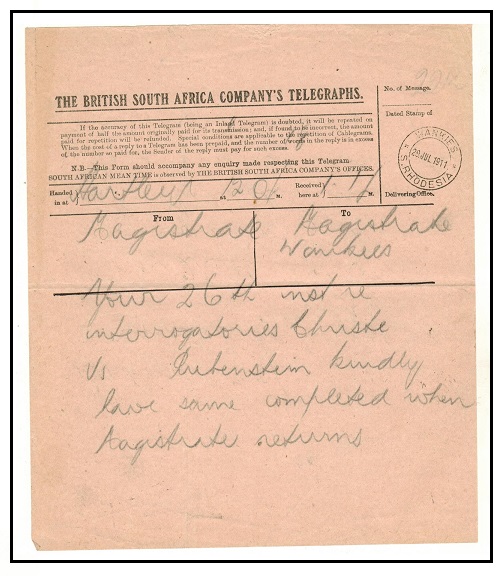 No. of Message.
THE BRITISH SOUTH AFRICA COMPANY'S TELEGRAPHS.
Dated Stamp of
If the accuracy of this Telegram (being an Inland Telegram) is doubted, it will be repeated on
payment of half the amount originally paid for its transmission; and, if found to be incorrect, the amount
paid for repetition will be refunded. Special conditions are applicable to the repetition of Cablegrams.
When the cost of a reply to a Telegram has been prepaid, and the number of words in the reply is in excess
of the number so paid for, the Sender of the reply must pay for such excess.
WANKIES
29 JUL 1911
S. RHODESIA
N.B.—This Form should accompany any enquiry made respecting this Telegram.
SOUTH AFRICAN MEAN TIME is observed by THE BRITISH SOUTH AFRICA COMPANY'S OFFICES.
Handed in at Hartley at M. Received here at M. Delivering Office.
From To
Magistrate Magistrate
Wankies
Your 26th inst re
interrogatories Christie
Vs Rubenstein kindly
have same completed when
Magistrate returns